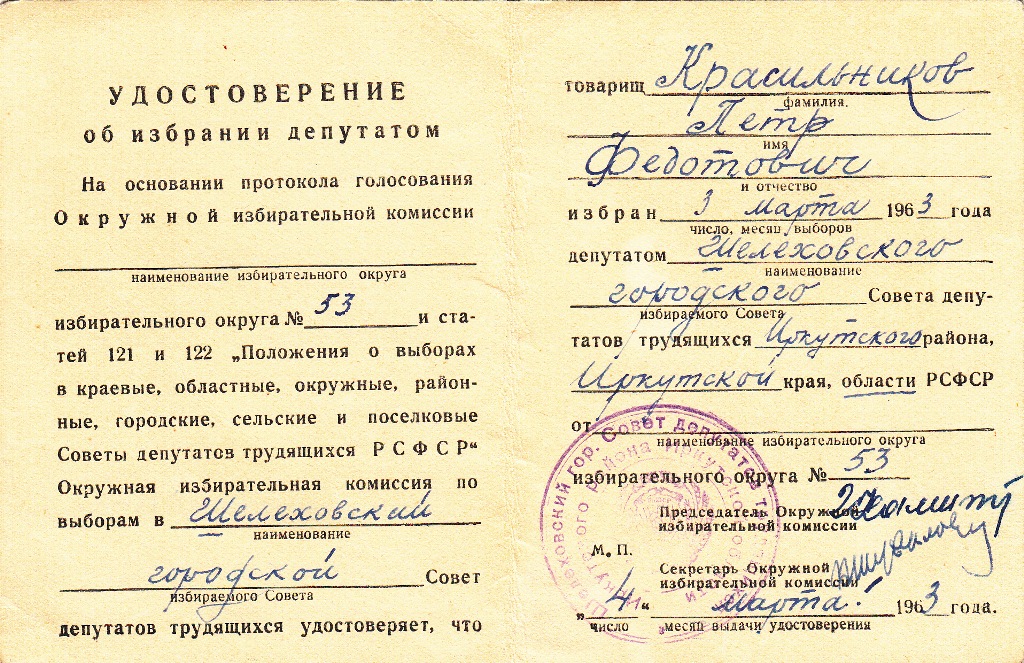 УДОСТОВЕРЕНИЕ
об избрании депутатом
На основании протокола голосования
Окружной избирательной комиссии
наименование избирательного округа
избирательного округа № 53 и ста-
тей 121 и 122 „Положения о выборах
в краевые, областные, окружные, район-
ные, городские, сельские и поселковые
Советы депутатов трудящихся РСФСР“
Окружная избирательная комиссия по
выборам в Шелеховский
наименование
городской Совет
избираемого Совета
депутатов трудящихся удостоверяет, что
товарищ Красильников
фамилия.
Петр
имя
Федотович
и отчество
избран 3 марта 1963 года
число, месяц выборов
депутатом Шелеховского
наименование
городского Совета депу-
избираемого Совета
татов трудящихся Иркутского района,
Иркутской края, области РСФСР
от
наименование избирательного округа
избирательного округа № 53
Председатель Окружной
избирательной комиссии
М. П.
Секретарь Окружной
избирательной комиссии
„4“ марта 1963 года.
число месяц выдачи удостоверения
Шелеховский гор. Совет депутатов
района Иркутской